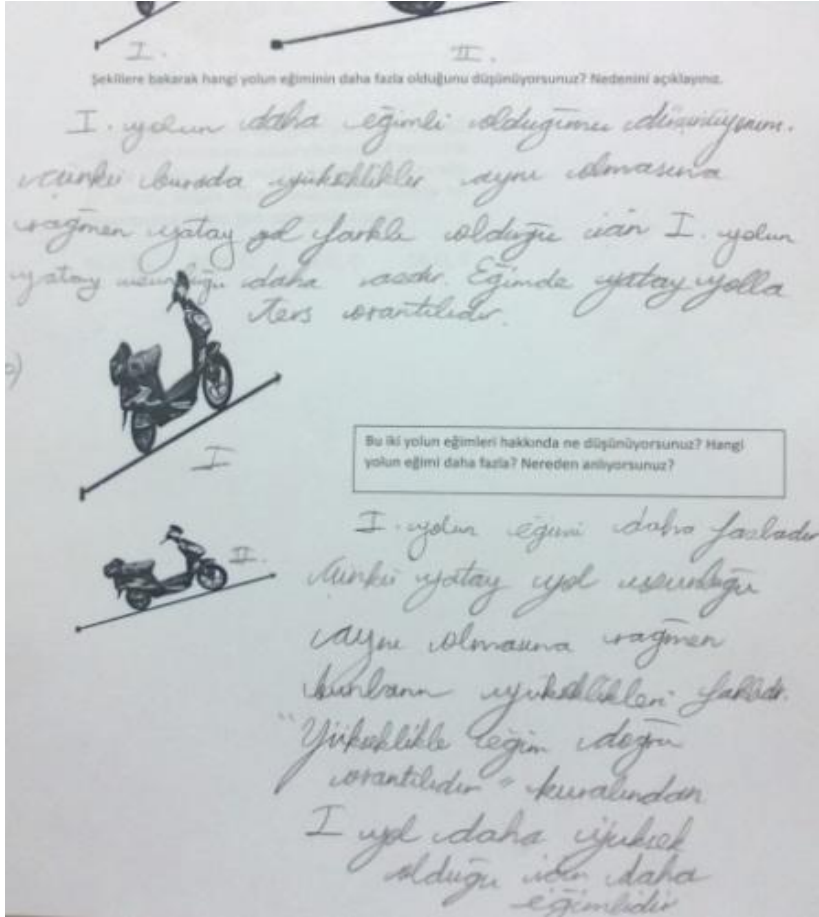 I.
II.
Şekillere bakarak hangi yolun eğiminin daha fazla olduğunu düşünüyorsunuz? Nedenini açıklayınız.
I. yolun daha eğimli olduğunu düşünüyorum.
Çünkü burada yükseklikler aynı olmasına
rağmen yatay yol farklı olduğu için I. yolun
yatay uzunluğu daha azdır. Eğimde yatay yolla
ters orantılıdır.
c)
I
Bu iki yolun eğimleri hakkında ne düşünüyorsunuz? Hangi
yolun eğimi daha fazla? Nereden anlıyorsunuz?
II.
I. yolun eğimi daha fazladır
Çünkü yatay yol uzunluğu
aynı olmasına rağmen
bunların yükseklikleri farklıdır.
"Yükseklikle eğim doğru
orantılıdır" kuralından
I yol daha yüksek
olduğu için daha
eğimlidir